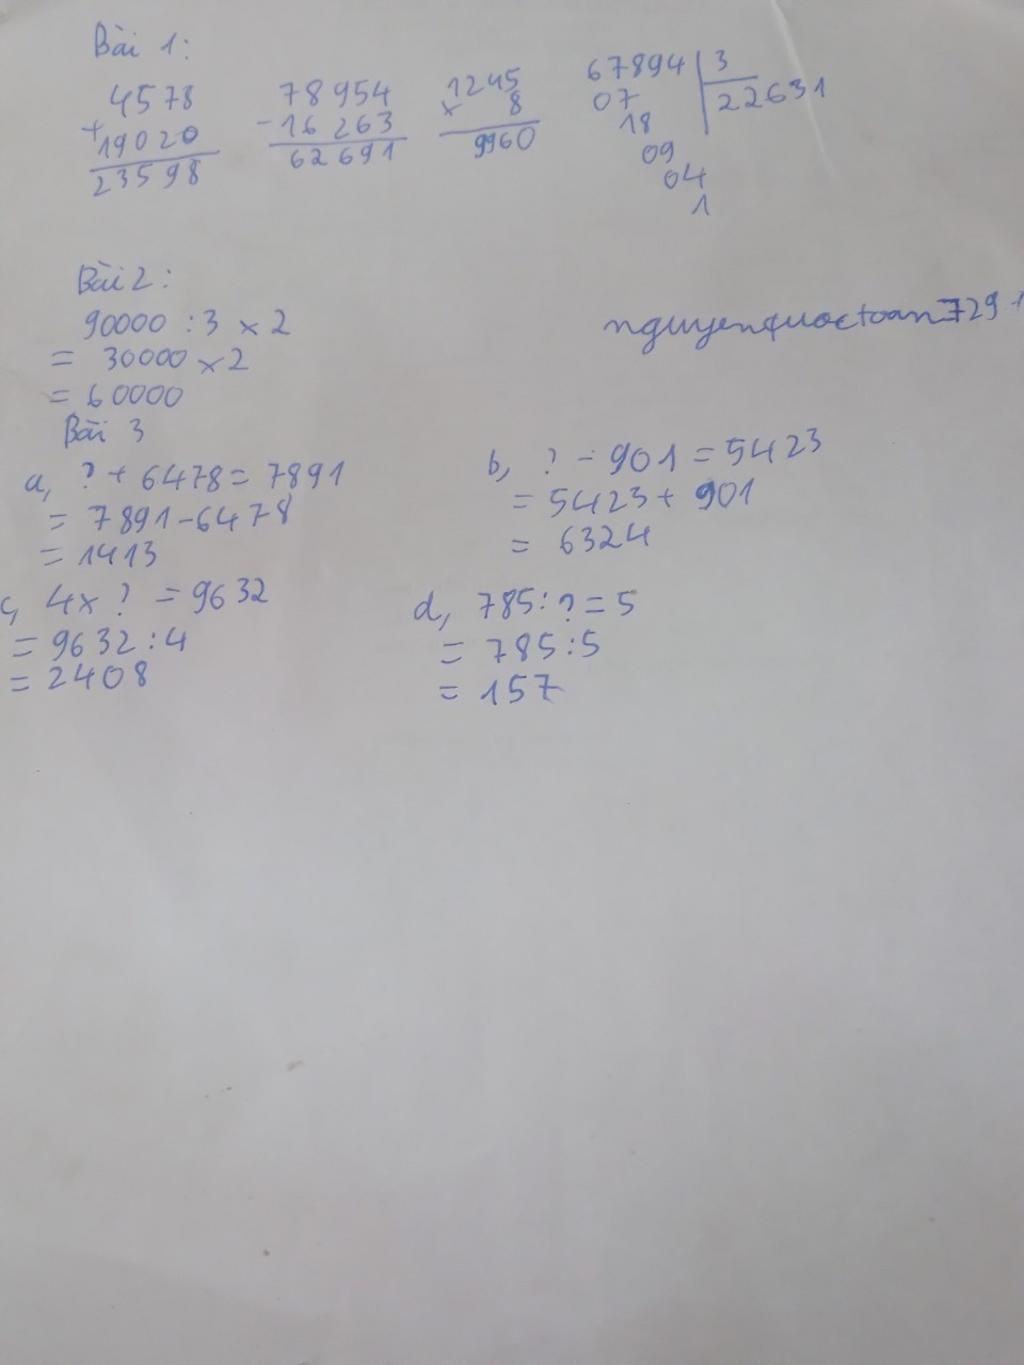 Bài 1:
4578
+
19020
23598
78954
- 16263
62691
1245
x 8
9960
67894 3
07 22631
18
09
04
1
Bài 2:
90000 : 3 x 2
= 30000 x 2
= 60000
nguyenquoctoan729
Bài 3
a, ? + 6478 = 7891
= 7891 - 6478
= 1413
b, ? - 901 = 5423
= 5423 + 901
= 6324
c, 4 x ? = 9632
= 9632 : 4
= 2408
d, 785 : ? = 5
= 785 : 5
= 157